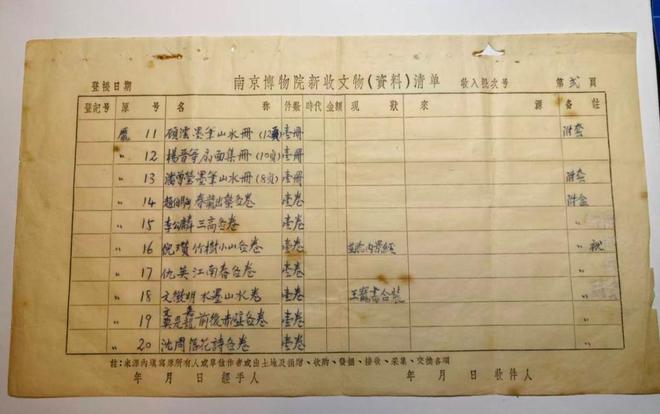 登檢日期 南京博物院新收文物(資料)清单 收入批次号 第 弍 頁
登記号 原号 名称 件数 時代 金額 現狀 來源 备註
龐 11 顧澐墨筆山水冊(12頁) 壹冊 附套
〃 12 楊晋等扇面集冊(10頁) 壹冊
〃 13 潘雪瑩墨筆山水冊(8頁) 壹冊 附套
〃 14 趙伯駒春龍出蟄合卷 壹卷 附盒
〃 15 李公麟三高合卷 壹卷 〃
〃 16 倪瓚竹樹小山合卷 壹卷 〃
〃 17 仇英江南春合卷 壹卷 〃
〃 18 文徵明水墨山水卷 壹卷 王寵書合裝 〃
〃 19 前後赤壁合卷 壹卷 〃
〃 20 沈周落花詩合卷 壹卷 〃
註:來源內填寫原所有人或單位作者或出土地及捐贈、收購、發掘、接收、采集、交換各項
年 月 日 經手人 年 月 日 收件人